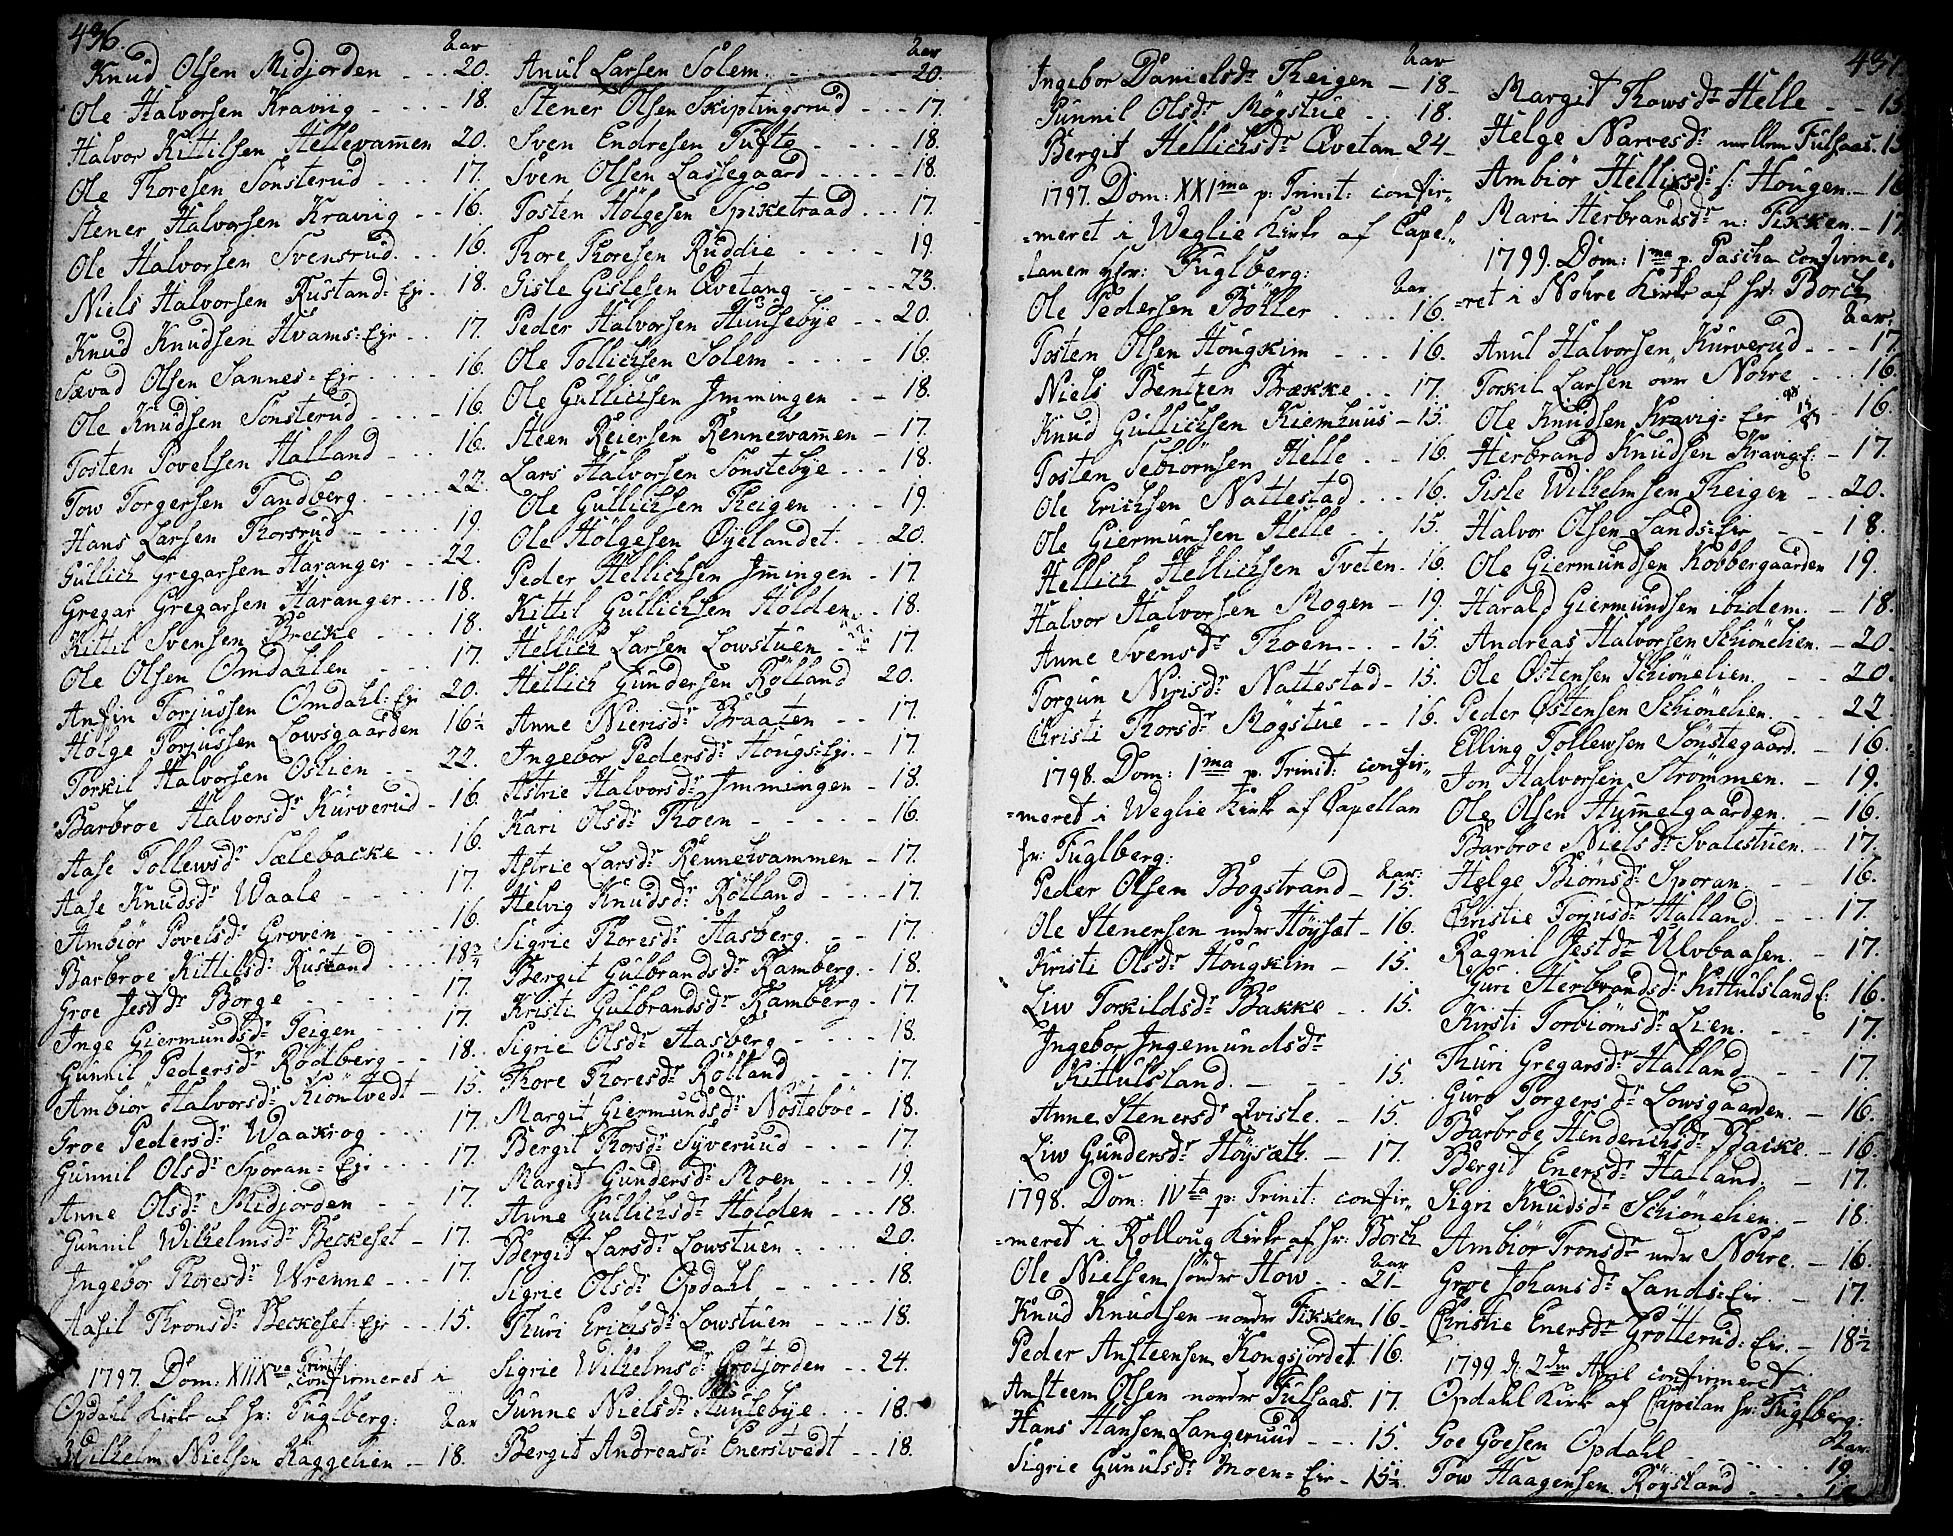 436.
Aar
Knud Olsen Midjorden - - - 20.
Ole Halvorsen Kraviig - - - - 18.
Halvor Kittilsen Hellevam̅en 20.
Ole Thoresen Sönsterud - - - 17.
Stener Halvorsen Kraviig - - 16.
Ole Halvorsen Svensrud. - - 16.
Niels Halvorsen Rustand: Eje - 18.
Knud Knudsen Hvams: Eje - - 17.
Sævad Olsen Sannes: Eje - - - 16.
Ole Knudsen Sönsterud - - - - 16.
Tosten Povelsen Halland - - - 16.
Tow Torgersen Tandberg. - - - 22.
Hans Larsen Thorsrud - - - - 19.
Güllich Gregarsen Haranger - - 22.
Gregar Gregarsen Haranger - - 18.
Kittil Svensen Brecke - - - - 18.
Ole Olsen Omdahlen - - - 17.
Anfin Torjussen Omdahl: Eje 20.
Holge Torjussen Lowsgaarden 16½
Torkil Halvorsen Oslien - - 22.
Barbroe Halvorsdr Kurverud - 16.
Aase Tollewsdr Sælebacke - - 16.
Aase Knudsdr Waale - - - - 17.
Ambiör Povelsdr Groven - - - - 16.
Barbroe Kittilsdr Rustand - - - 18¾
Groe Jestdr Borge - - - - - 17.
Inge Giermundsdr Teigen - - - 17.
Gunnil Pedersdr Rödberg - - 18.
Ambiör Halvorsdr Kiomtvedt - 15.
Groe Pedersdr Waakrog - - - 17.
Gunnil Olsdr Sporan: Eje - - - 17.
Anne Olsdr Midjorden - - - 17.
Gunnil Wilhelmsdr Beckeset - 17.
Ingebor Thoresdr Wrenne - - - 17.
Aasil Thronsdr Beckeset: Eje - - 15.
1797. Dom: XIIXve Trinit: confirmeret i
Opdahl Kirke af Hr: Fuglberg: Aar
Wilhelm Nielsen Kaggelien - 18.
Aar
Anul Larsen Solem. - - - - 20.
Stener Olsen Skiptingsrud - - - 17.
Sven Endresen Tufte - - - - 18.
Sven Olsen Lassegaard - - - - - 18.
Tosten Holgesen Spiketraad - - - 17.
Thore Thoresen Ruddie - - - - 19.
Gisle Gislesen Qvetang - - - - 23.
Peder Halvorsen Huusebye - - 20.
Ole Tollichsen Solem - - - - 16.
Ole Gullichsen Immingen - - 18.
Steen Reiersen Rennewam̅en - 17.
Lars Halvorsen Sönstebye - - - 18.
Ole Gullichsen Theigen - - - 19.
Ole Holgesen Öyelandet. - - 20.
Peder Hellichsen Im̅ingen - 17.
Kittil Gullichsen Holden - - 18.
Hellich Larsen Lowstuen - - 17.
Hellich Gundersen Rölland 20.
Anne Nierisdr Braaten - - 17.
Ingebor Pedersdr Hougs: Eje. - 17.
Astrie Halvorsdr Immingen - 18.
Kari Olsdr Thoen - - - - - 16.
Astrie Larsdr Rennewammen - 17.
Helvig Knudsdr Rölland - - - - 17.
Sigrie Thoresdr Aasberg. - - 17.
Bergit Gulbrandsdr Ramberg. - 18.
Kristi Gulbrandsdr Ramberg - 17.
Sigrie Olsdr Aasberg - - - - 18.
Thore Thoresdr Rölland - - - 17.
Margit Giermundsdr Nösteboe - 18.
Bergit Thorsdr Syveruud - - - 17.
Margit Gundersdr Moen - - - 19.
Anne Gullichsdr Holden - - - 18.
Bergit Larsdr Lowstuen - - - - 20.
Sigrie Olsdr Opdahl - - - - 18.
Thuri Erichsdr Lowstuen - - - - 18.
Sigrie Wilhelmsdr Grotjorden - - 24.
Gunne Nielsdr Huusebye. - - 18.
Bergit Andreasdr Enerstvedt - - 18.
437.
Aar
Ingebor Danielsdr Theigen - 18-
Gunnil Olsdr Mögstue - - 18.
Bergit Hellichsdr Qvetan 24-
1797. Dom: XXIma p: Trinit: confir„
=meret i Weglie Kirke af Capel„
=lanen Hr: Fuglberg: Aar
Ole Pedersen Böller - - - 16.
Tosten Olsen Hougkim - - - 16.
Niels Bentzen Brække - - 17.
Knud Gullichsen Kiemhuus - 15.
Tosten Sebiornsen Helle - - 16.
Ole Erichsen Nattestad - - - 16.
Ole Giermunsen Helle - - 15.
Hellich Hellichsen Tveten - 16.
Halvor Halvorsen Mogen - 19.
Anne Svensdr Thoen - - - 15.
Torgun Nirisdr Nattestad - 15.
Christi Thorsdr Mogstue - - 16.
1798. Dom: 1ma p. Trinit: confir„
=meret i Weglie Kirke af Capellan
Hr: Fuglberg:
Aar:
Peder Olsen Bogstrand - 15.
Ole Stenersen nedre Höysæt - 16.
Kristi Olsdr Hougkiim - 15.
Liw Torkildsdr Bakke - - 15.
Ingebor Ingemundsdr
Kittulsland. - - - 15.
Anne Stenersdr Qvisle. - 15.
Liw Gundersdr Höysæth. - 17.
1798. Dom: IVta p: Trinit: confir„
=meret i Rolloug Kirke af Hr: Borch
Aar
Ole Nielsen söndre How - - 21-
Knud Knudsen nordre Fikken 16-
Peder Ansteensen Kongsjordet 16.
Ansteen Olsen nordre Fulsaas 17.
Hans Hansen Langeruud - - - 15.
Sigrie Gunulsdr Moen: Eie - 15½.
Margit Thowsdr Helle - - 15
Helge Narvesdr mellem Fulsaas. 15
Ambiör Hellixsdr s: Hougen. - 16
Mari Herbrandsdr n: Fikken. - 17
1799. Dom: 1ma p. Pascha confirme„
=ret i Nohre Kirke af Hr: Borch
Aar:
Anul Halvorsen Kurverud - - - 17
Torkil Larsen over Nohre - - - 16.
Ole Knudsen Kravig: Eie - 16.
Herbrand Knudsen Kravig: E: - 17.
Gisle Wilhelmsen Theigen - - 20.
Halvor Olsen Lands: Eie - - 18.
Ole Giermundsen Kobbergaarden 19.
Harald Giermundsen ibidem. - 18.
Andreas Halvorsen Schiönelien. - 20-
Ole Ostensen Schiönelien. - - 20.
Peder Ostensen Schiönelien. - 22
Elling Tollewsen Sönstegaard. - 16.
Jon Halvorsen Strömmen. - 19.
Ole Olsen Hum̅elgaarden. - 16.
Barbroe Nielsdr Svalestuen. - 17.
Helge Biörnsdr Sporan. - - 16.
Christie Torjusdr Halland. - - 17.
Ragnil Jestdr Ulvbaasen. - 17.
Guri Herbrandsdr Kittulsland E: 16.
Kirsti Torbiörnsdr Lien. - - 17.
Thuri Gregarsdr Halland - - 17.
Guro Torgersdr Lowsgaarden. - 16.
Barbroe Henderichsdr Backe. - 16.
Bergit Enersdr Halland. - 17.
Sigri Knudsdr Schiönelien. - 18.
Ambiör Tronsdr nedre Nohre. - 16.
Groe Johansdr Lands: Eie. - 17.
Christie Enersdr Grötterud: Eie. - 18½
1799 d. 2den April confirmeret i
Opdahl Kirke af Capellan Hr: Fuglberg:
Aar.
Goe Goesen Opdahl - - - - - 19.
Tow Haagensen Röysland - - -